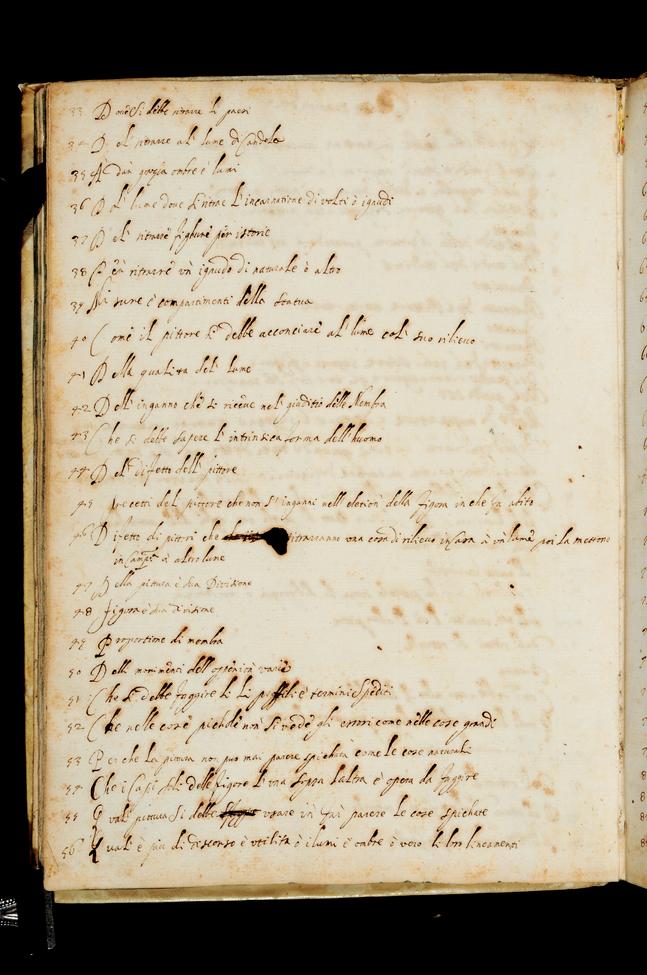 33 Come si debbe ritrarre li paesi
34 Del ritrarre al lume di Candela
35 A dar gratia ombre è lumi
36 Del lume dove si ritrae l'incarnatione di volti ò ignudi
37 Del ritrarre fighure per istorie
38 Per ritrarre un ignudo di naturale ò altro
39 Misure è compartimenti della statua
40 Come il pittore si debbe acconciare al lume col suo rilievo
41 Della qualita del lume
42 Dell'inganno che si riceve nel giuditio delle Membra
43 Che si debbe sapere l'intrinsica forma dell'huomo
44 Del difetto dell pittore
45 precetti del pittore che non s'inganni nell eletion della figura in che fa abito
46 Difetto di pittori che ritrarranno una cosa di rilievo in Casa à un lume poi la mettono
in Campo à altro lume
47 Della pittura è sua Divisione
48 figura è sua divisione
49 Proportione di membra
50 Delli movimenti dell
51 Che si debbe fuggire li termini spediti
52 Che nelle cose picchole non si vede gli errori come nelle cose grandi
53 Perche la pittura non puo mai parere spichata come le cose naturali
54 Che i Capi delle figore l'una sopra l'altra è opera da fuggire
55 Quale pittura si debbe usare in far parere le cose spichate
56 Quale è piu di discorso è utilita ò i lumi è ombre ò vero li loro lineamenti